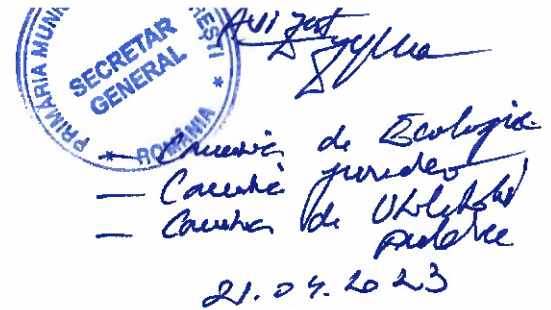 PRIMĂRIA MUNI
REȘTI * ROMÂNIA *
SECRETAR
GENERAL
Avizat
— Comisia de Ecologie
— Comisia juridică
— Comisia de Utilități
publice
21.04.2023